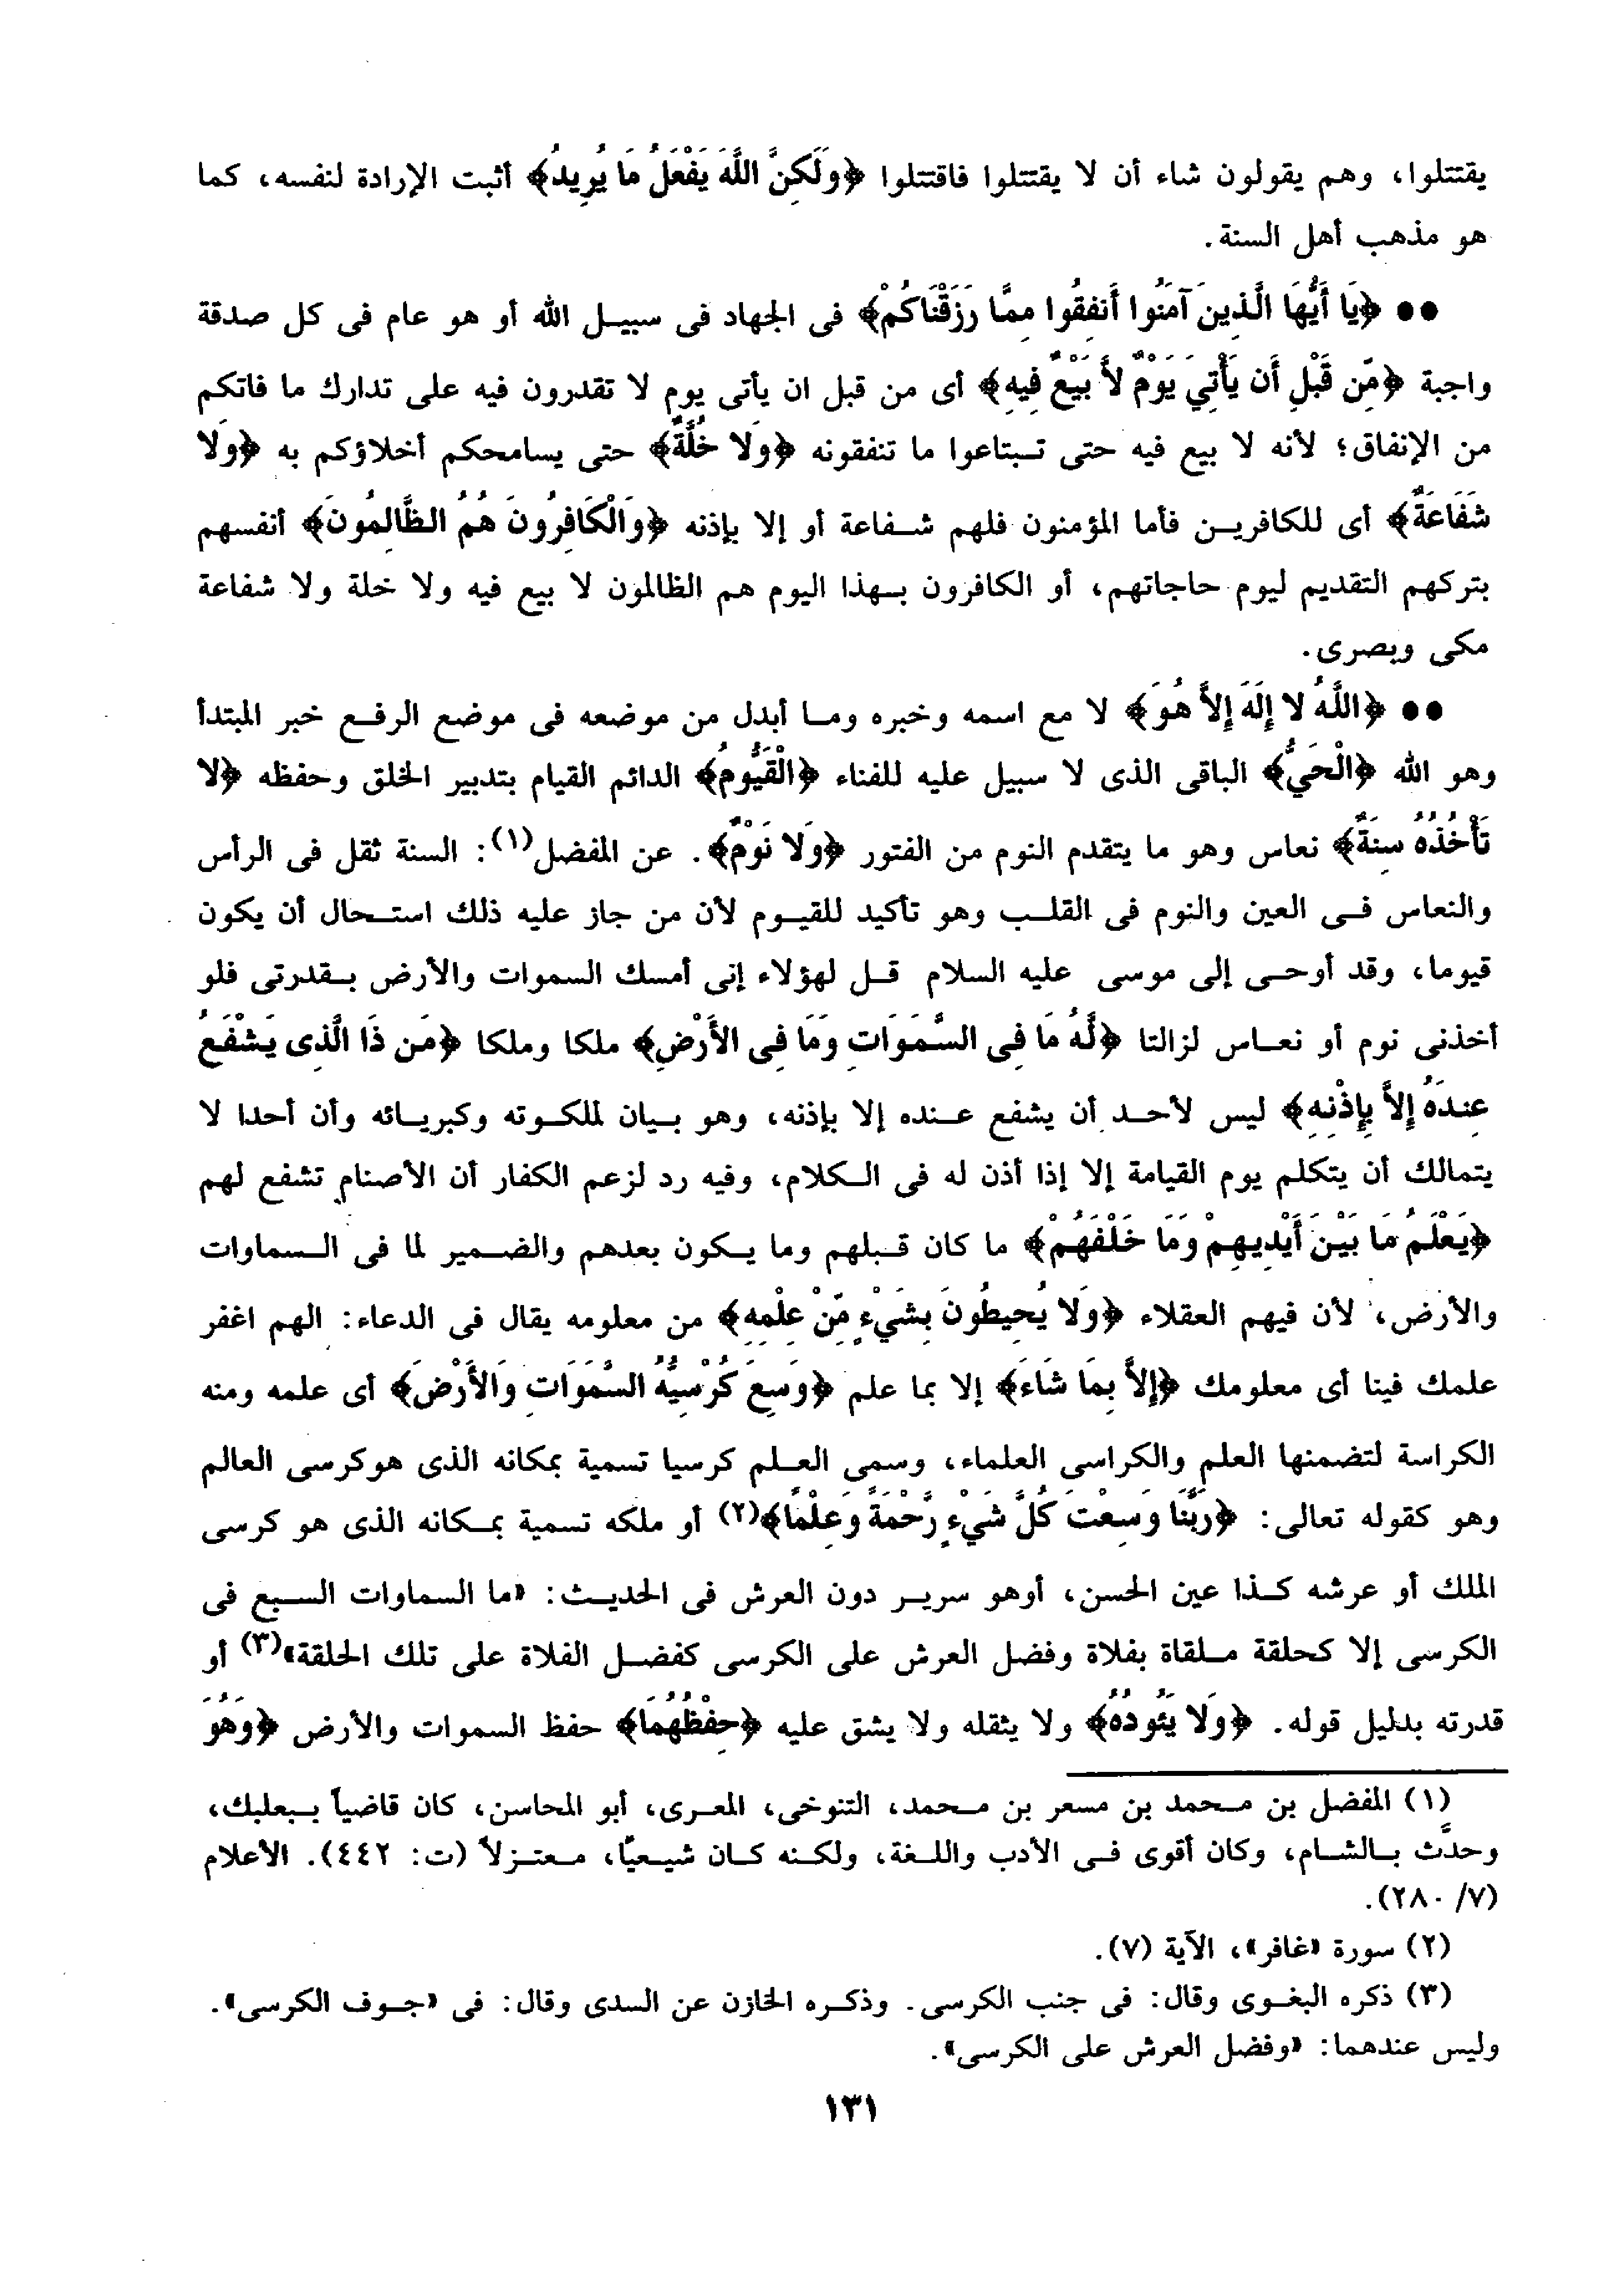 يقتتلوا، وهم يقولون شاء أن لا يقتتلوا فاقتتلوا ﴿وَلَكِنَّ اللَّهَ يَفْعَلُ مَا يُرِيدُ﴾ أثبت الإرادة لنفسه، كما
هو مذهب أهل السنة.
●● ﴿يَا أَيُّهَا الَّذِينَ آمَنُوا أَنفِقُوا مِمَّا رَزَقْنَاكُمْ﴾ فى الجهاد فى سبيل الله أو هو عام فى كل صدقة
واجبة ﴿مِّن قَبْلِ أَن يَأْتِيَ يَوْمٌ لاَّ بَيْعٌ فِيهِ﴾ أى من قبل ان يأتى يوم لا تقدرون فيه على تدارك ما فاتكم
من الإنفاق؛ لأنه لا بيع فيه حتى تبتاعوا ما تنفقونه ﴿وَلا خُلَّةٌ﴾ حتى يسامحكم أخلاؤكم به ﴿وَلا
شَفَاعَةٌ﴾ أى للكافرين فأما المؤمنون فلهم شفاعة أو إلا بإذنه ﴿وَالْكَافِرُونَ هُمُ الظَّالِمُونَ﴾ أنفسهم
بتركهم التقديم ليوم حاجاتهم، أو الكافرون بهذا اليوم هم الظالمون لا بيع فيه ولا خلة ولا شفاعة
مكى وبصرى.
●● ﴿اللَّهُ لا إِلَهَ إِلاَّ هُوَ﴾ لا مع اسمه وخبره وما أبدل من موضعه فى موضع الرفع خبر المبتدأ
وهو الله ﴿الْحَيُّ﴾ الباقى الذى لا سبيل عليه للفناء ﴿الْقَيُّومُ﴾ الدائم القيام بتدبير الخلق وحفظه ﴿لا
تَأْخُذُهُ سِنَةٌ﴾ نعاس وهو ما يتقدم النوم من الفتور ﴿وَلا نَوْمٌ﴾. عن المفضل(١): السنة ثقل فى الرأس
والنعاس فى العين والنوم فى القلب وهو تأكيد للقيوم لأن من جاز عليه ذلك استحال أن يكون
قيوما، وقد أوحى إلى موسى عليه السلام قل لهؤلاء إنى أمسك السموات والأرض بقدرتى فلو
أخذنى نوم أو نعاس لزالتا ﴿لَّهُ مَا فِى السَّمَوَاتِ وَمَا فِى الأَرْضِ﴾ ملكا وملكا ﴿مَن ذَا الَّذِى يَشْفَعُ
عِندَهُ إِلاَّ بِإِذْنِهِ﴾ ليس لأحد أن يشفع عنده إلا بإذنه، وهو بيان لملكوته وكبريائه وأن أحدا لا
يتمالك أن يتكلم يوم القيامة إلا إذا أذن له فى الكلام، وفيه رد لزعم الكفار أن الأصنام تشفع لهم
﴿يَعْلَمُ مَا بَيْنَ أَيْدِيهِمْ وَمَا خَلْفَهُمْ﴾ ما كان قبلهم وما يكون بعدهم والضمير لما فى السماوات
والأرض، لأن فيهم العقلاء ﴿وَلا يُحِيطُونَ بِشَيْءٍ مِّنْ عِلْمِهِ﴾ من معلومه يقال فى الدعاء: الهم اغفر
علمك فينا أى معلومك ﴿إِلاَّ بِمَا شَاءَ﴾ إلا بما علم ﴿وَسِعَ كُرْسِيُّهُ السَّمَوَاتِ وَالأَرْضَ﴾ أى علمه ومنه
الكراسة لتضمنها العلم والكراسى العلماء، وسمى العلم كرسيا تسمية بمكانه الذى هوكرسى العالم
وهو كقوله تعالى: ﴿رَبَّنَا وَسِعْتَ كُلَّ شَيْءٍ رَّحْمَةً وَعِلْمًا﴾(٢) أو ملكه تسمية بمكانه الذى هو كرسى
الملك أو عرشه كذا عين الحسن، أوهو سرير دون العرش فى الحديث: «ما السماوات السبع فى
الكرسى إلا كحلقة ملقاة بفلاة وفضل العرش على الكرسى كفضل الفلاة على تلك الحلقة»(٣) أو
قدرته بدليل قوله. ﴿وَلا يَئُودُهُ﴾ ولا يثقله ولا يشق عليه ﴿حِفْظُهُمَا﴾ حفظ السموات والأرض ﴿وَهُوَ
(١) المفضل بن محمد بن مسعر بن محمد، التنوخى، المعرى، أبو المحاسن، كان قاضياً ببعلبك،
وحدَّث بالشام، وكان أقوى فى الأدب واللغة، ولكنه كان شيعيًا، معتزلاً (ت: ٤٤٢). الأعلام
(٧/ ٢٨٠).
(٢) سورة «غافر»، الآية (٧).
(٣) ذكره البغوى وقال: فى جنب الكرسى. وذكره الخازن عن السدى وقال: فى «جوف الكرسى».
وليس عندهما: «وفضل العرش على الكرسى».
١٣١